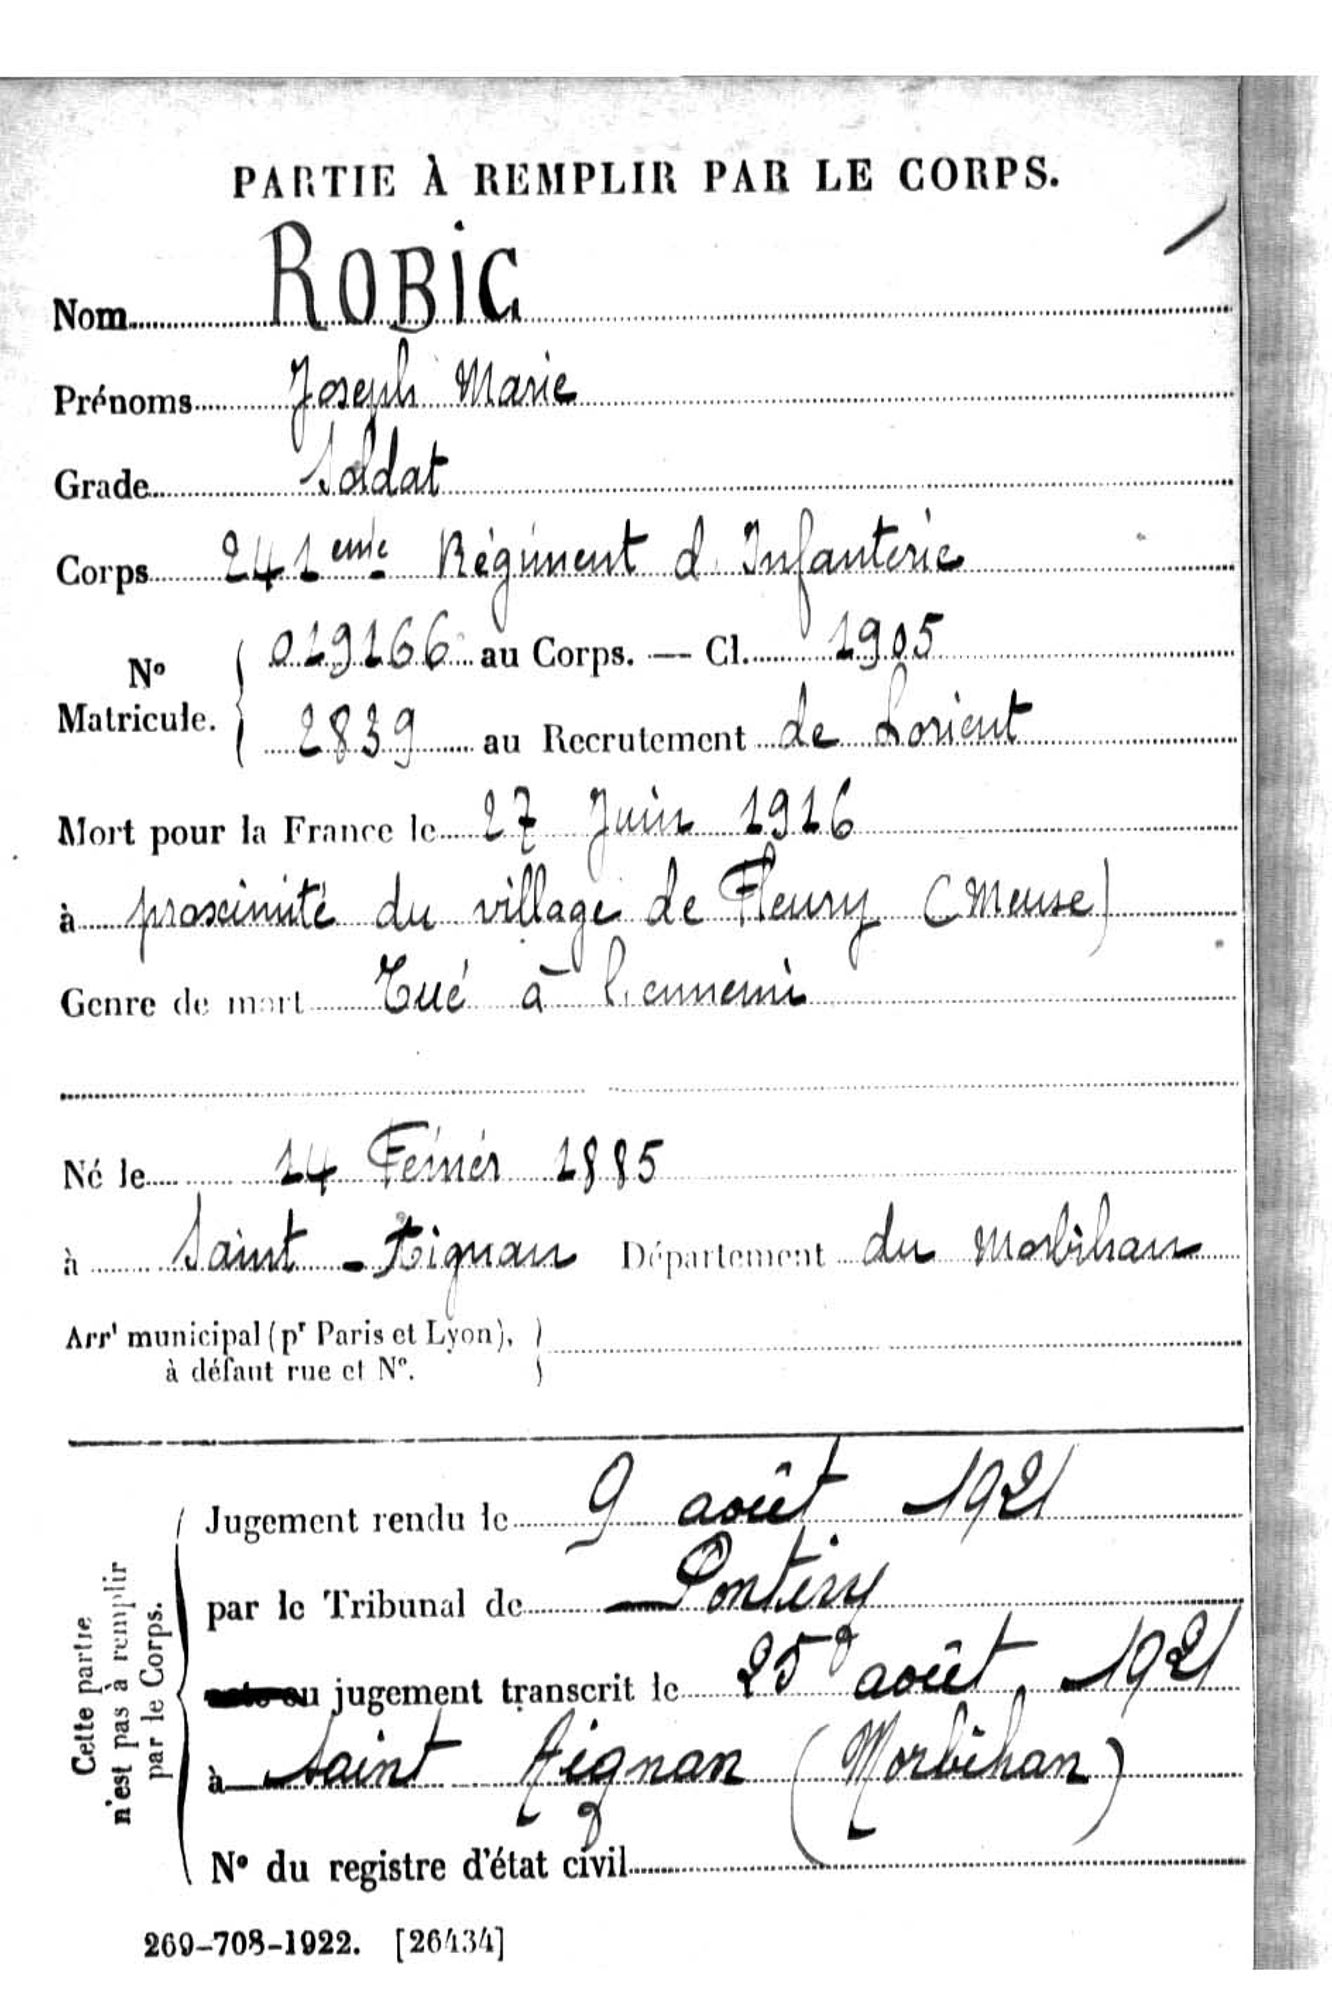 PARTIE À REMPLIR PAR LE CORPS.
Nom ROBIC
Prénoms Joseph Marie
Grade Soldat
Corps 241eme Régiment d'Infanterie
No Matricule. 019166 au Corps. — Cl. 1905
2839 au Recrutement de Lorient
Mort pour la France le 27 Juin 1916
à proximité du village de Fleury (Meuse)
Genre de mort Tué à l'ennemi
Né le 14 Février 1885
à Saint-Aignan Département du Morbihan
Arrt municipal (pr Paris et Lyon),
à défaut rue et No.
Cette partie
n'est pas à remplir
par le Corps.
Jugement rendu le 9 août 1921
par le Tribunal de Pontivy
ou jugement transcrit le 25 août 1921
à Saint Aignan (Morbihan)
No du registre d'état civil
269-708-1922. [26434]